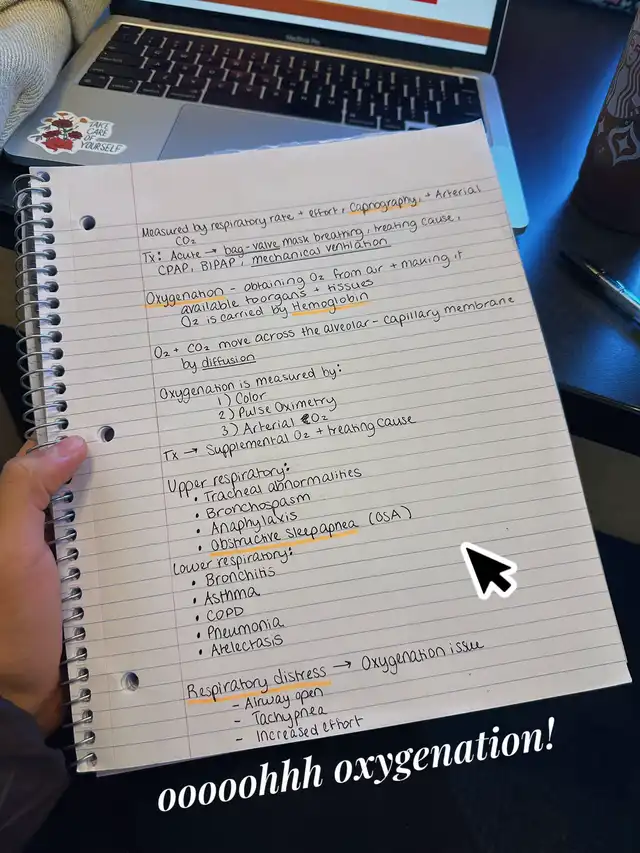 MacBook Pro
TAKE
CARE
OF
YOURSELF
Measured by respiratory rate + effort, capnography, + Arterial
CO2
Tx: Acute → bag-valve mask breathing, treating cause,
CPAP, BIPAP, mechanical ventilation
Oxygenation - obtaining O2 from air + making it
available to organs + tissues
O2 is carried by Hemoglobin
O2 + CO2 move across the alveolar - capillary membrane
by diffusion
Oxygenation is measured by:
1) Color
2) Pulse Oximetry
3) Arterial O2
Tx → Supplemental O2 + treating cause
Upper respiratory:
• Tracheal abnormalities
• Bronchospasm
• Anaphylaxis
• Obstructive sleep apnea (OSA)
Lower respiratory:
• Bronchitis
• Asthma
• COPD
• Pneumonia
• Atelectasis
Respiratory distress → Oxygenation issue
- Airway open
- Tachypnea
- Increased effort
ooooohhh oxygenation!